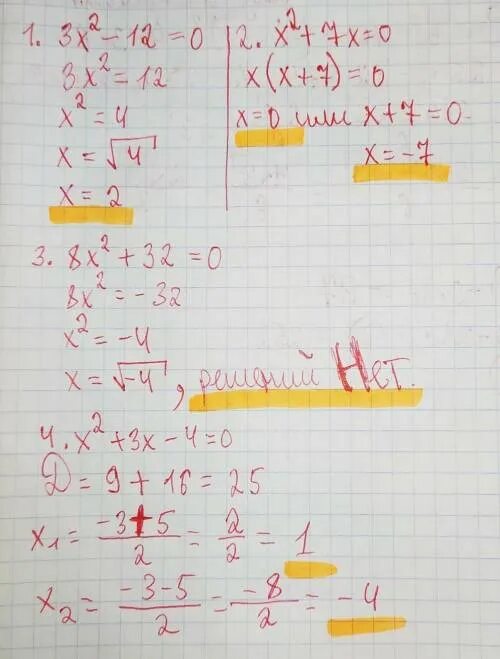 1. 3x² - 12 = 0
3x² = 12
x² = 4
x = √4
x = 2
2. x² + 7x = 0
x(x+7) = 0
x = 0 или x + 7 = 0
x = -7
3. 8x² + 32 = 0
8x² = -32
x² = -4
x = √-4, решений Нет.
4. x² + 3x - 4 = 0
D = 9 + 16 = 25
x₁ = (-3+5)/2 = 2/2 = 1
x₂ = (-3-5)/2 = -8/2 = -4